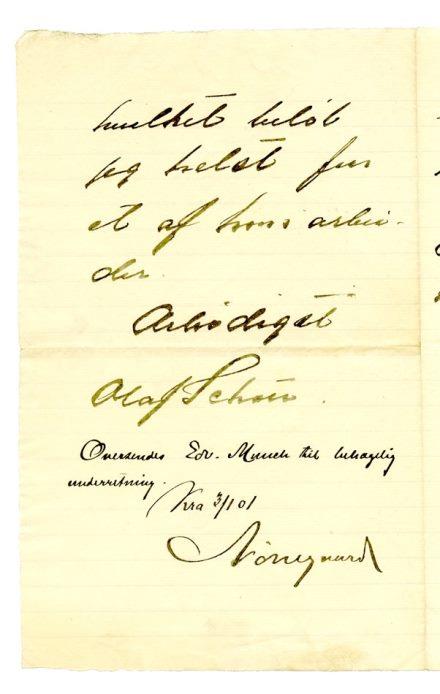 hvilket beløb
jeg helst for
et af hans arbei-
der.
Ærbødigst
Olaf Schou.
Oversendes Edv. Munch till behagelig
underretning.
Kra 3/1 01
Nörregaard